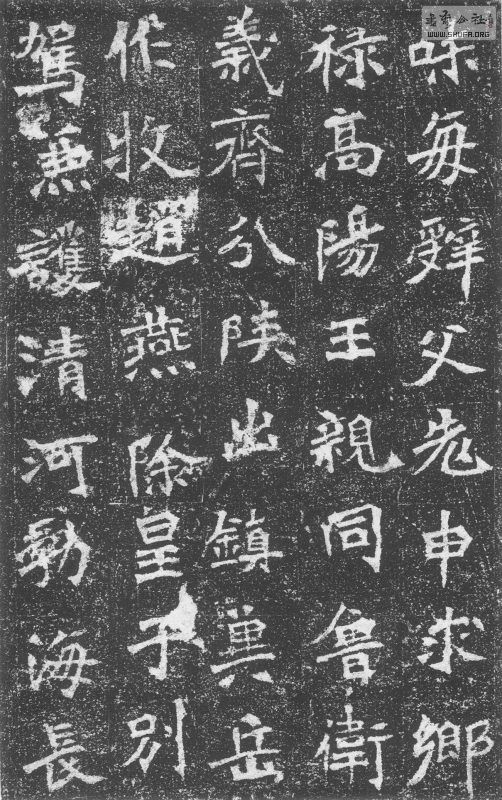 味每辤父老申求鄉
禄高陽王親同魯衛
義齊分陝出鎮兾岳
作收趙燕除皇子別
駕兼護清河勃海長
書艺公社
WWW.SHUFA.ORG